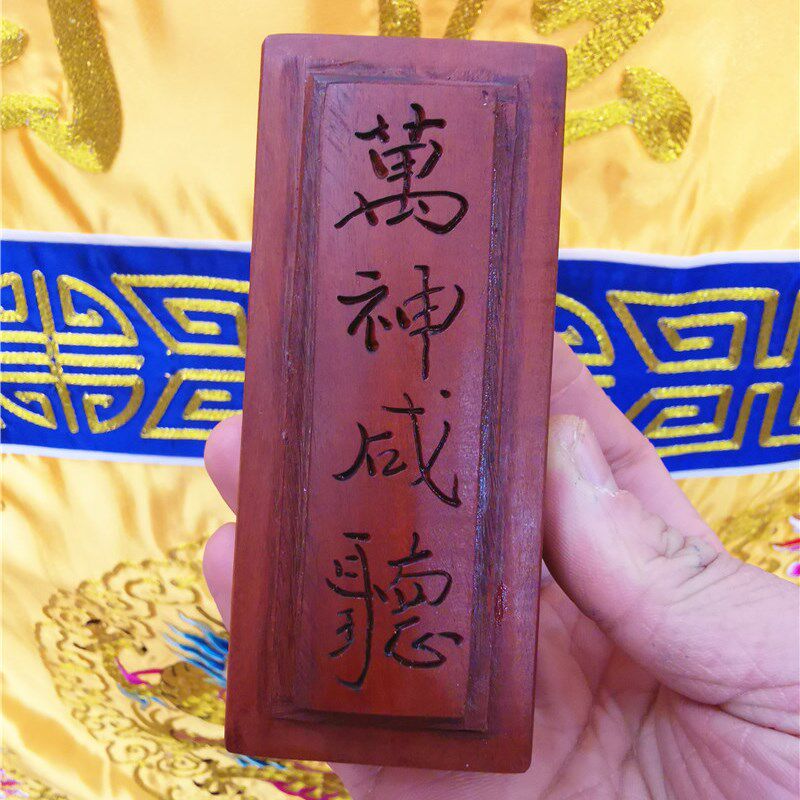 萬神咸聽